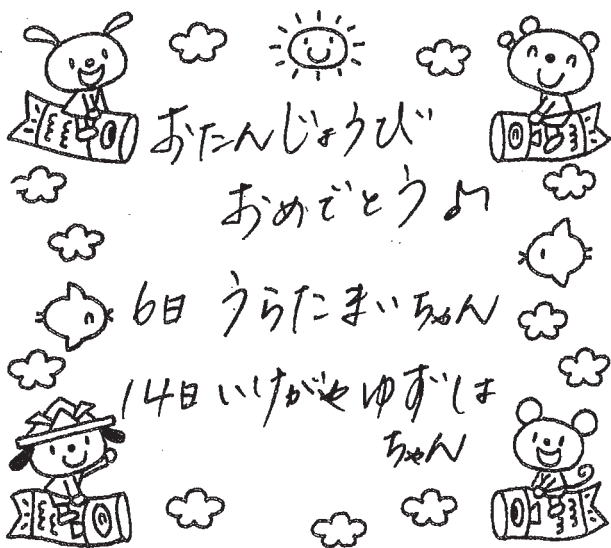 おたんじょうび
おめでとう♪
6日 うらたまいちゃん
14日 いけがやゆずは
ちゃん